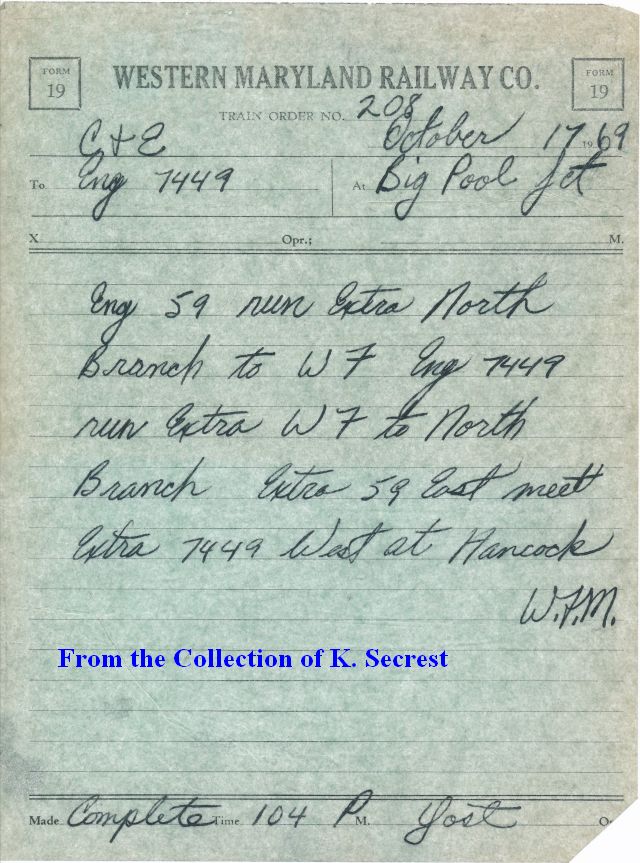 FORM 19 WESTERN MARYLAND RAILWAY CO. FORM 19
TRAIN ORDER NO. 208
C & E October 17 1969
To Eng 7449 At Big Pool Jct
X Opr.; M.
Eng 59 run Extra North
Branch to W F Eng 7449
run Extra W F to North
Branch Extra 59 East meet
Extra 7449 West at Hancock
W.F.M.
From the Collection of K. Secrest
Made Complete Time 104 P M. Yost